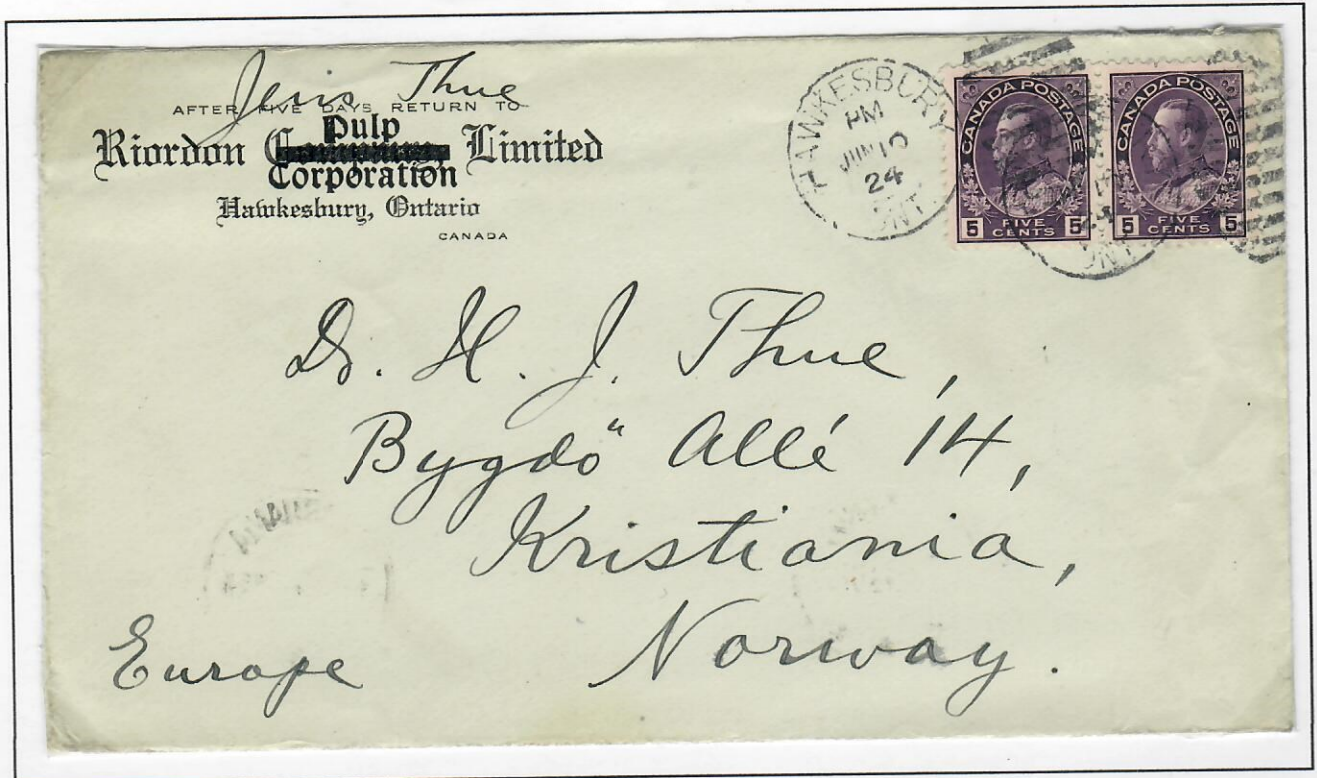 Jens Thue
AFTER FIVE DAYS RETURN TO
Pulp
Riordon Company Limited
Corporation
Hawkesbury, Ontario
CANADA
HAWKESBURY
PM
JUN 10
24
ONT.
CANADA POSTAGE
5 FIVE CENTS 5
CANADA POSTAGE
5 FIVE CENTS 5
Dr. H. J. Thue,
Bygdö Allé 14,
Kristiania,
Norway.
Europe